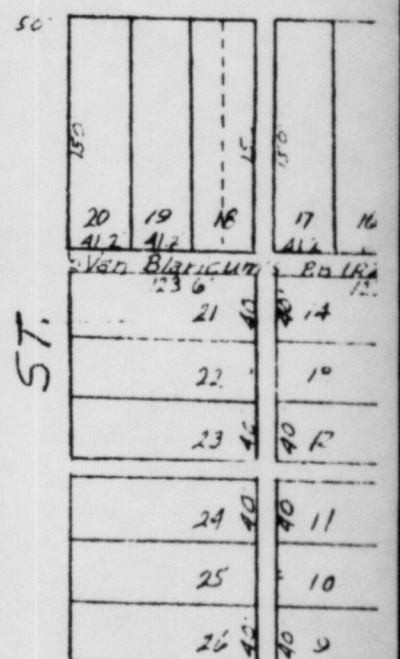 50
150 15 150
20 19 18 17 16
41.2 41.2 41.2
Van Blaricum's
123 6
ST.
21 40 40 14
22
23 40 40 12
24 40 40 11
25 10
26 40 40 9